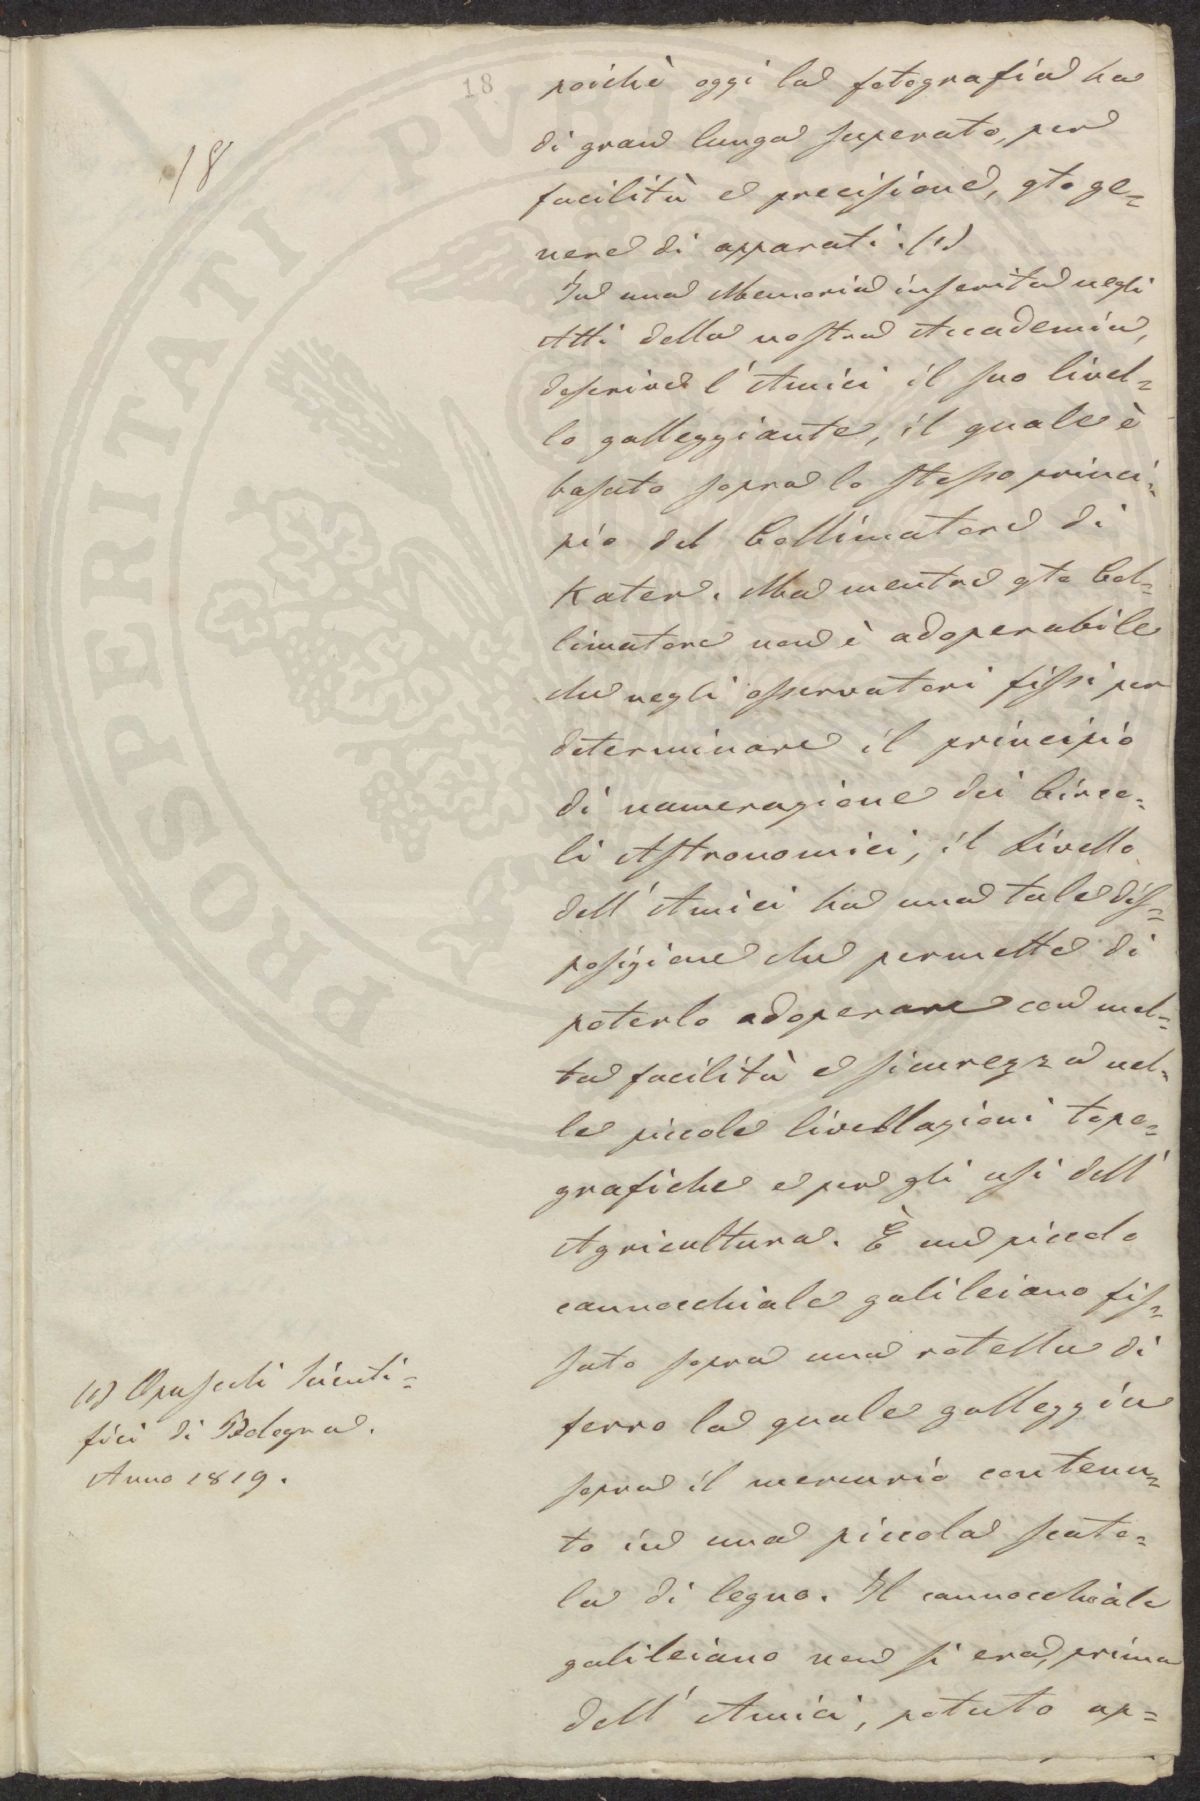 18
18
poichè oggi la fotografia ha
di gran lunga superato, per
facilità e precisione, qto ge=
nere di apparati. (1)
In una Memoria inserita negli
Atti della nostra Accademia,
descrive l'Amici il suo livel=
lo galleggiante, il quale è
basato sopra lo stesso princi=
pio del Collimatore di
Kater. Ma mentre qto Col=
limatore non è adoperabile
che negli osservatori fissi per
determinare il principio
di numerazione dei Circo=
li Astronomici, il Livello
dell'Amici ha una tale dis=
posizione che permette di
poterlo adoperare con mol=
ta facilità e sicurezza nel=
le piccole livellazioni topo=
grafiche e per gli usi dell'
Agricoltura. È un piccolo
cannocchiale galileiano fis=
sato sopra una rotella di
ferro la quale galleggia
sopra il mercurio contenu=
to in una piccola scato=
la di legno. Il cannocchiale
galileiano non si era, prima
dell'Amici, potuto ap=
(1) Opuscoli Scienti=
fici di Bologna.
Anno 1819.
PROSPERITATI PVBL